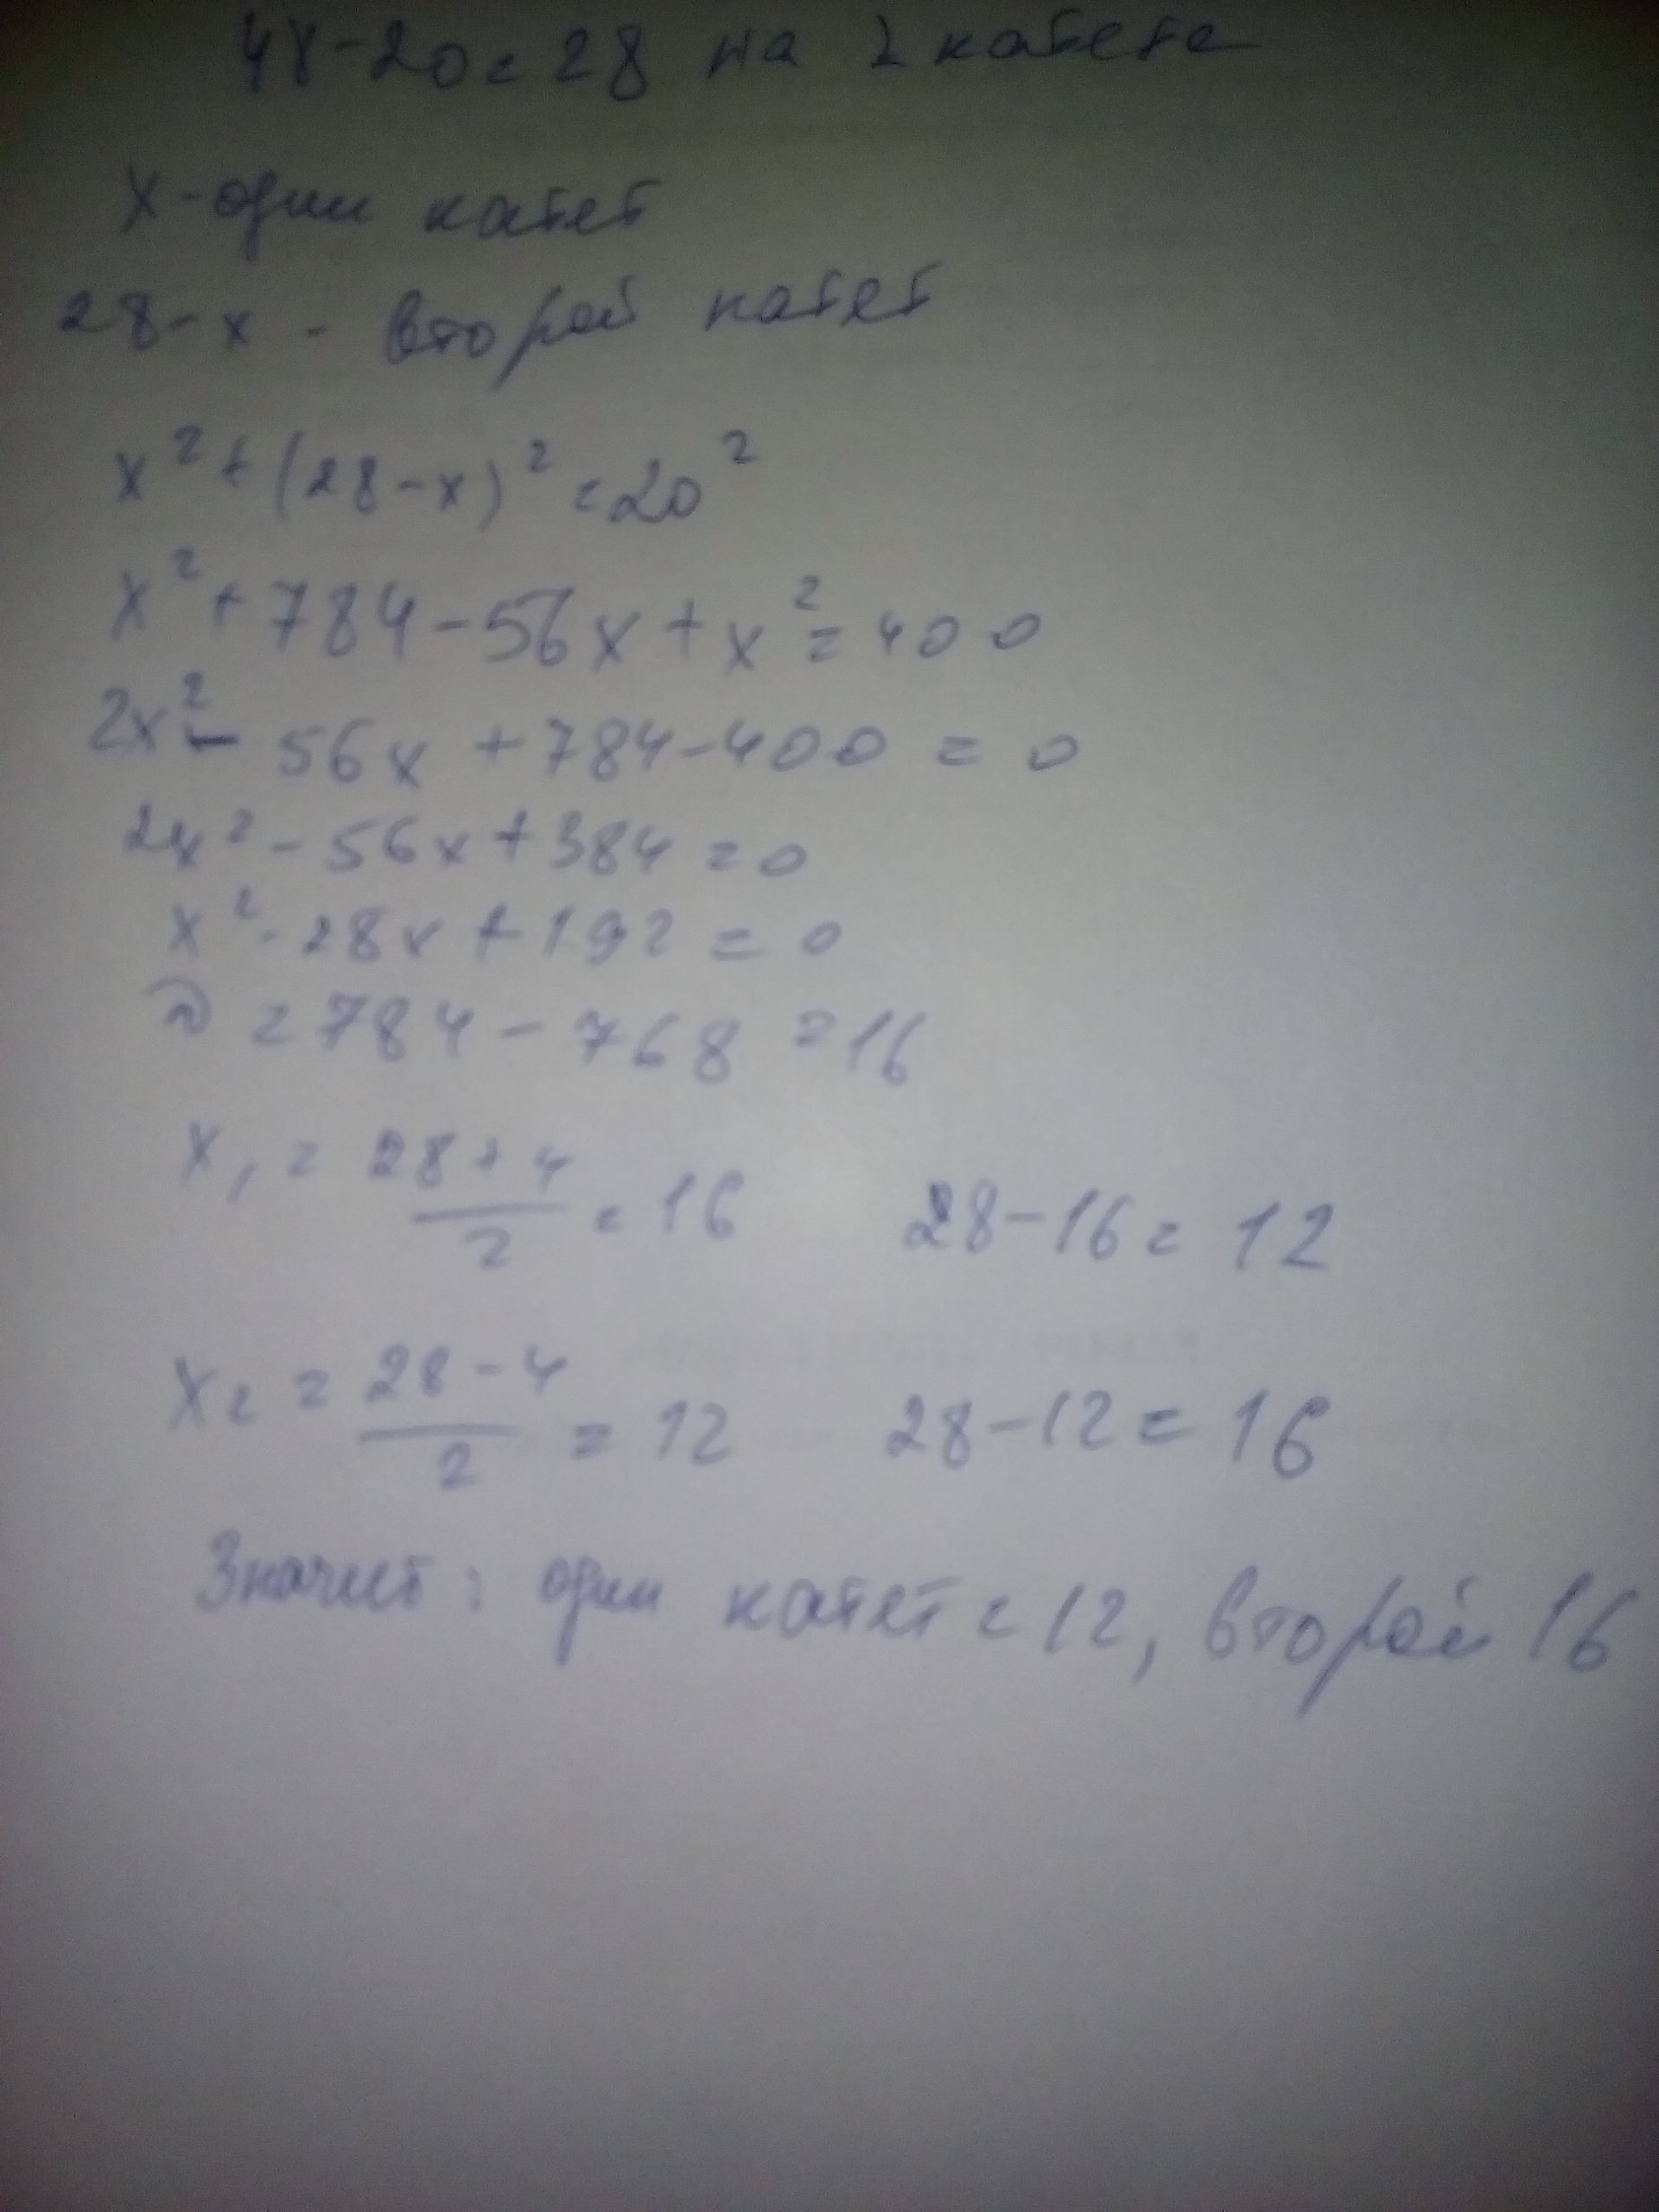 48-20=28 на 2 катета
x-один катет
28-x - второй катет
x²+(28-x)²=20²
x²+784-56x+x²=400
2x²-56x+784-400=0
2x²-56x+384=0
x²-28x+192=0
D=784-768=16
x₁=(28+4)/2=16 28-16=12
x₂=(28-4)/2=12 28-12=16
Значит: один катет=12, второй 16